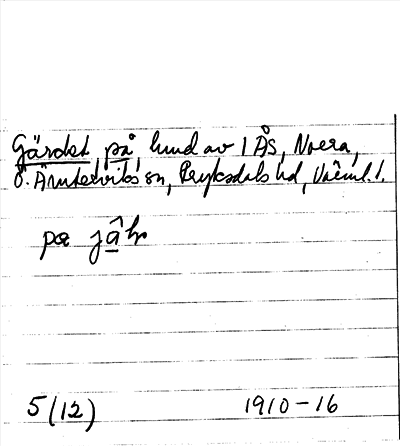 Gärdet, på hmd av 1 Ås, Noera,
Ö. Ämterviks sn, Fryksdals hd, Värml. l.
pœ jâ
5 (12) 1910-16